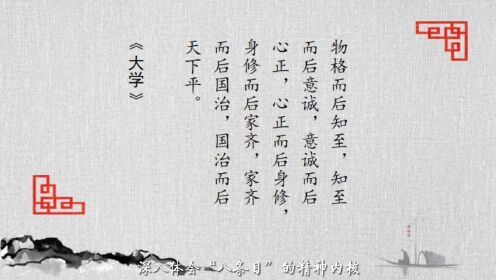 物格而后知至，知至
而后意诚，意诚而后
心正，心正而后身修，
身修而后家齐，家齐
而后国治，国治而后
天下平。
《大学》
深入体会“八条目”的精神内核